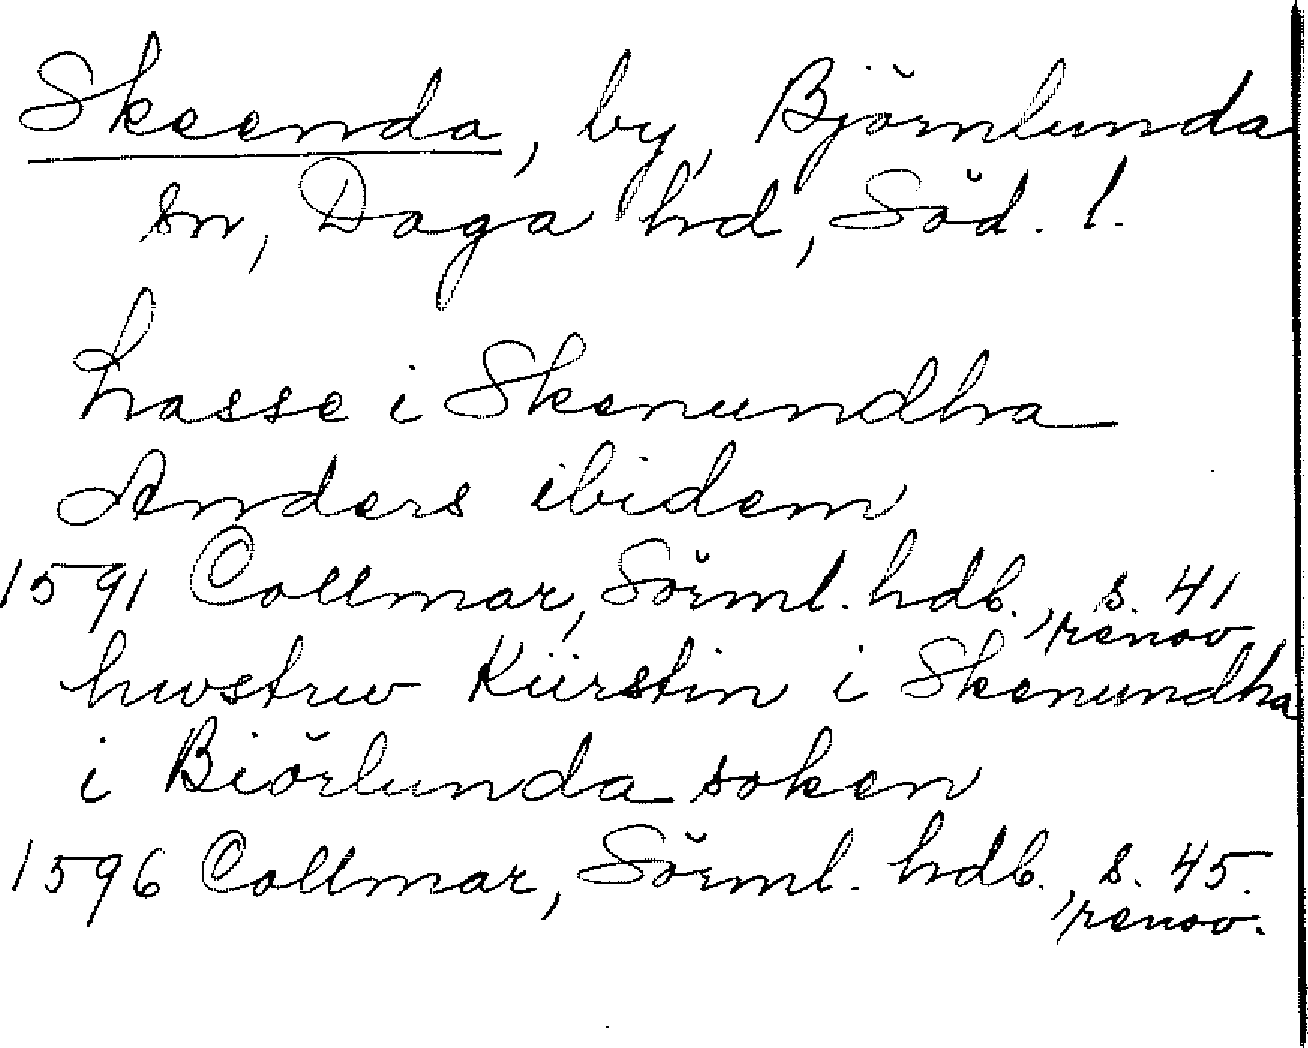 Skeenda, by, Björnlunda
sn, Daga hd, Söd. l.
Lasse i Skenundha
Anders ibidem
1591 Collmar, Sörml. hdb., s. 41
renov
hwstrw Kiirstin i Skenundha
i Biörlunda soken
1596 Collmar, Sörml. hdb., s. 45.
renov.